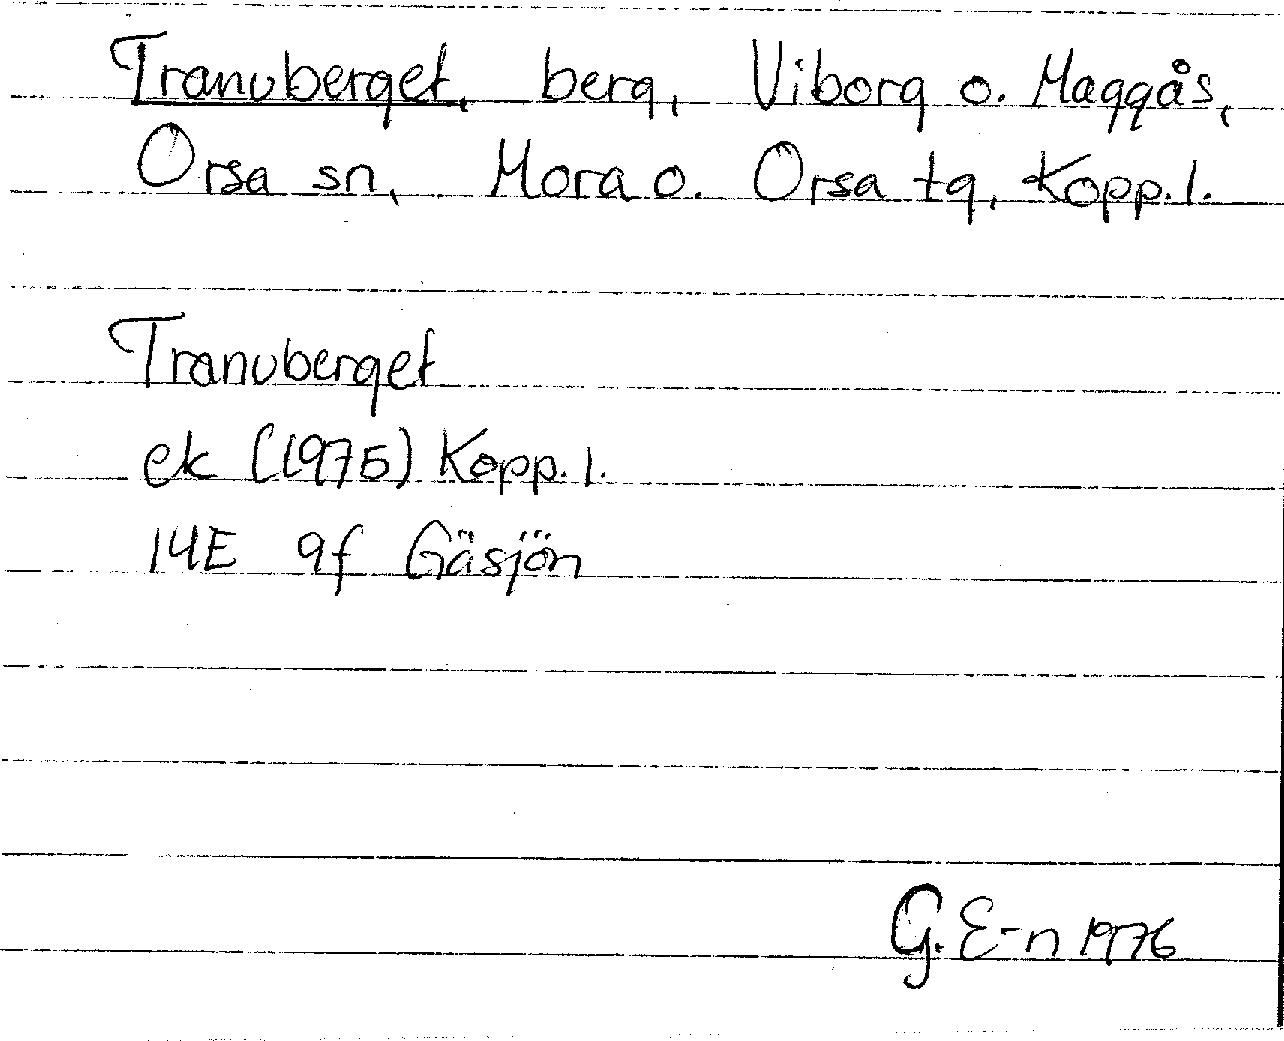 Tranuberget, berg, Viborg o. Maggås,
Orsa sn, Mora o. Orsa tg, Kopp.l.
Tranuberget
ek (1975) Kopp.l.
14E 9f Gäsjön
G. E-n 1976